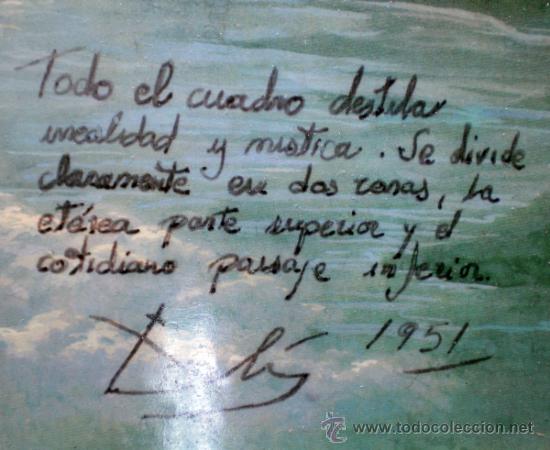 Todo el cuadro destila
irrealidad y mistica. Se divide
claramente en dos zonas, la
etérea parte superior y el
cotidiano paisaje inferior.
Dalí 1951
www.todocoleccion.net